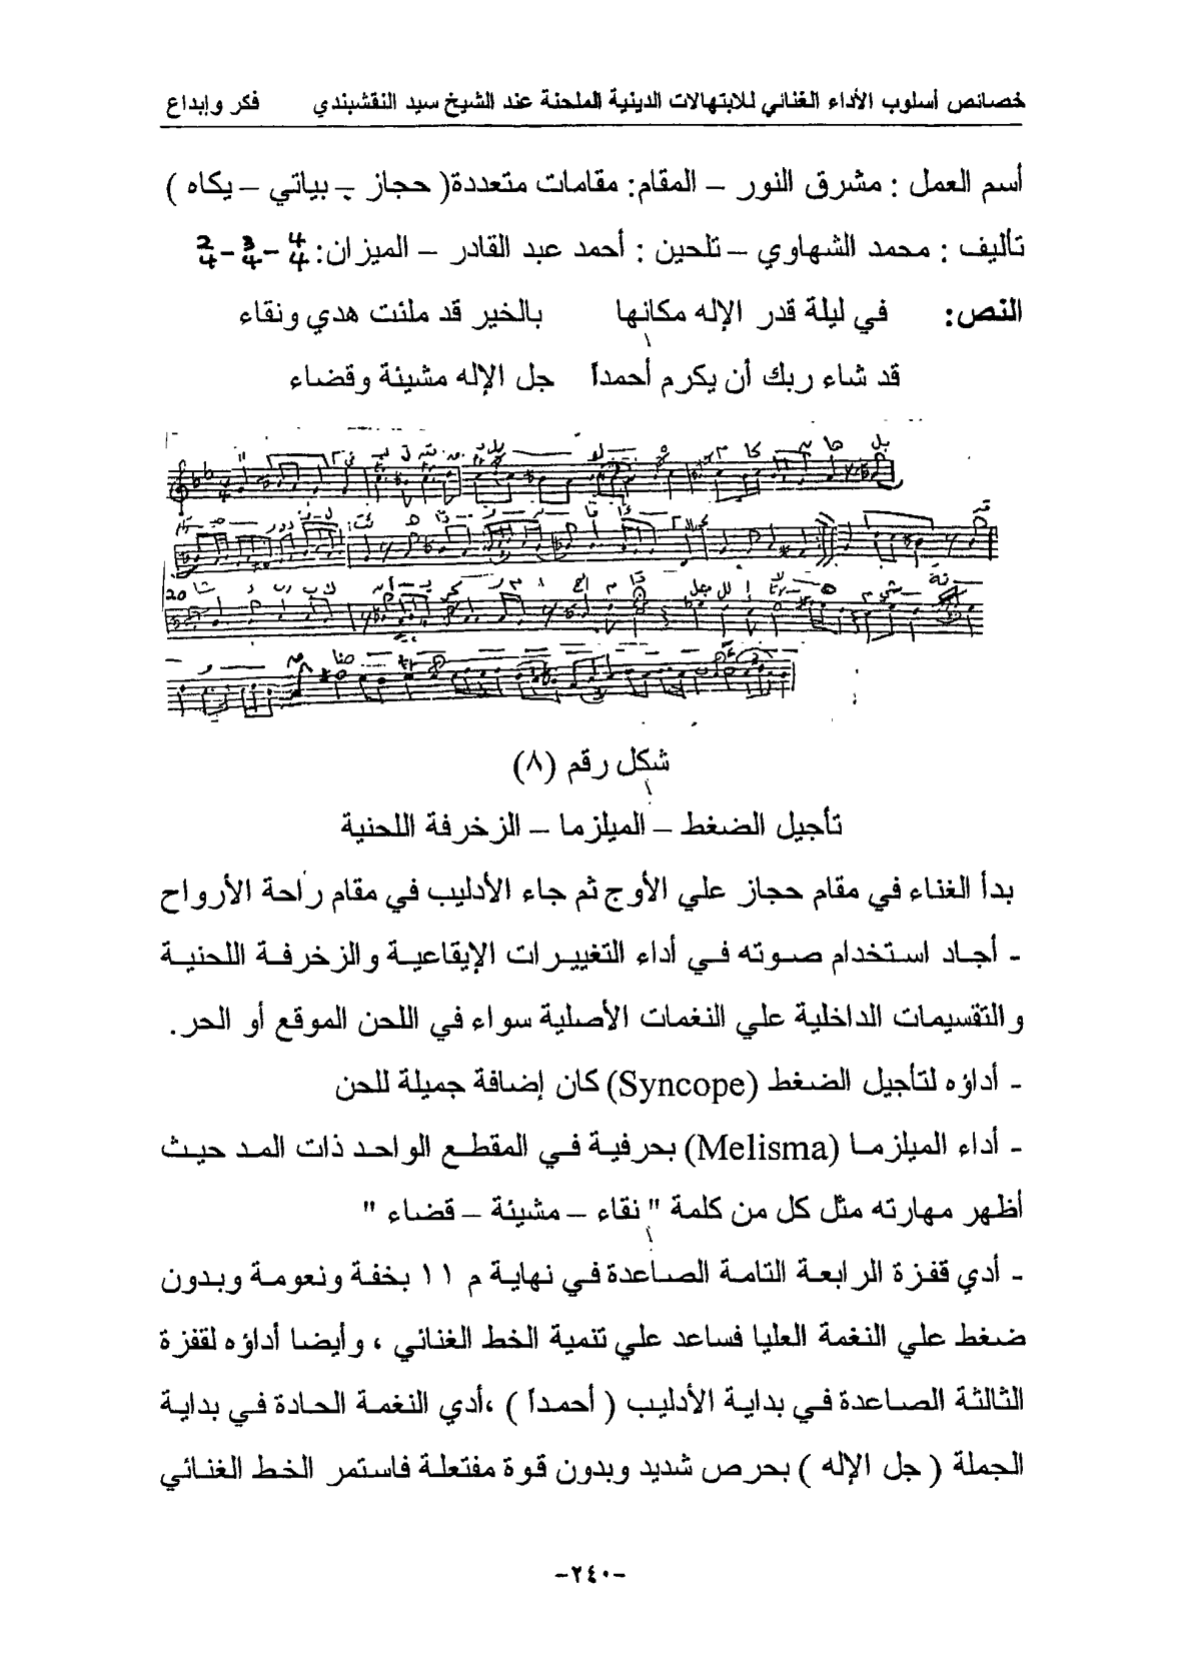 خصائص أسلوب الأداء الغنائي للابتهالات الدينية الملحنة عند الشيخ سيد النقشبندي فكر وإبداع
أسم العمل : مشرق النور – المقام: مقامات متعددة( حجاز – بياتي – يكاه )
تأليف : محمد الشهاوي – تلحين : أحمد عبد القادر – الميزان: 4/4 - 3/4 - 2/4
النص: في ليلة قدر الإله مكانها بالخير قد ملئت هدي ونقاء
قد شاء ربك أن يكرم أحمداً جل الإله مشيئة وقضاء
20
شكل رقم (٨)
تأجيل الضغط – الميلزما – الزخرفة اللحنية
بدأ الغناء في مقام حجاز علي الأوج ثم جاء الأدليب في مقام راحة الأرواح
- أجاد استخدام صوته في أداء التغييرات الإيقاعية والزخرفة اللحنية
والتقسيمات الداخلية علي النغمات الأصلية سواء في اللحن الموقع أو الحر.
- أداؤه لتأجيل الضغط (Syncope) كان إضافة جميلة للحن
- أداء الميلزما (Melisma) بحرفية في المقطع الواحد ذات المد حيث
أظهر مهارته مثل كل من كلمة " نقاء – مشيئة – قضاء "
- أدي قفزة الرابعة التامة الصاعدة في نهاية م ١١ بخفة ونعومة وبدون
ضغط علي النغمة العليا فساعد علي تنمية الخط الغنائي ، وأيضا أداؤه لقفزة
الثالثة الصاعدة في بداية الأدليب ( أحمداً ) ،أدي النغمة الحادة في بداية
الجملة ( جل الإله ) بحرص شديد وبدون قوة مفتعلة فاستمر الخط الغنائي
-٢٤٠-